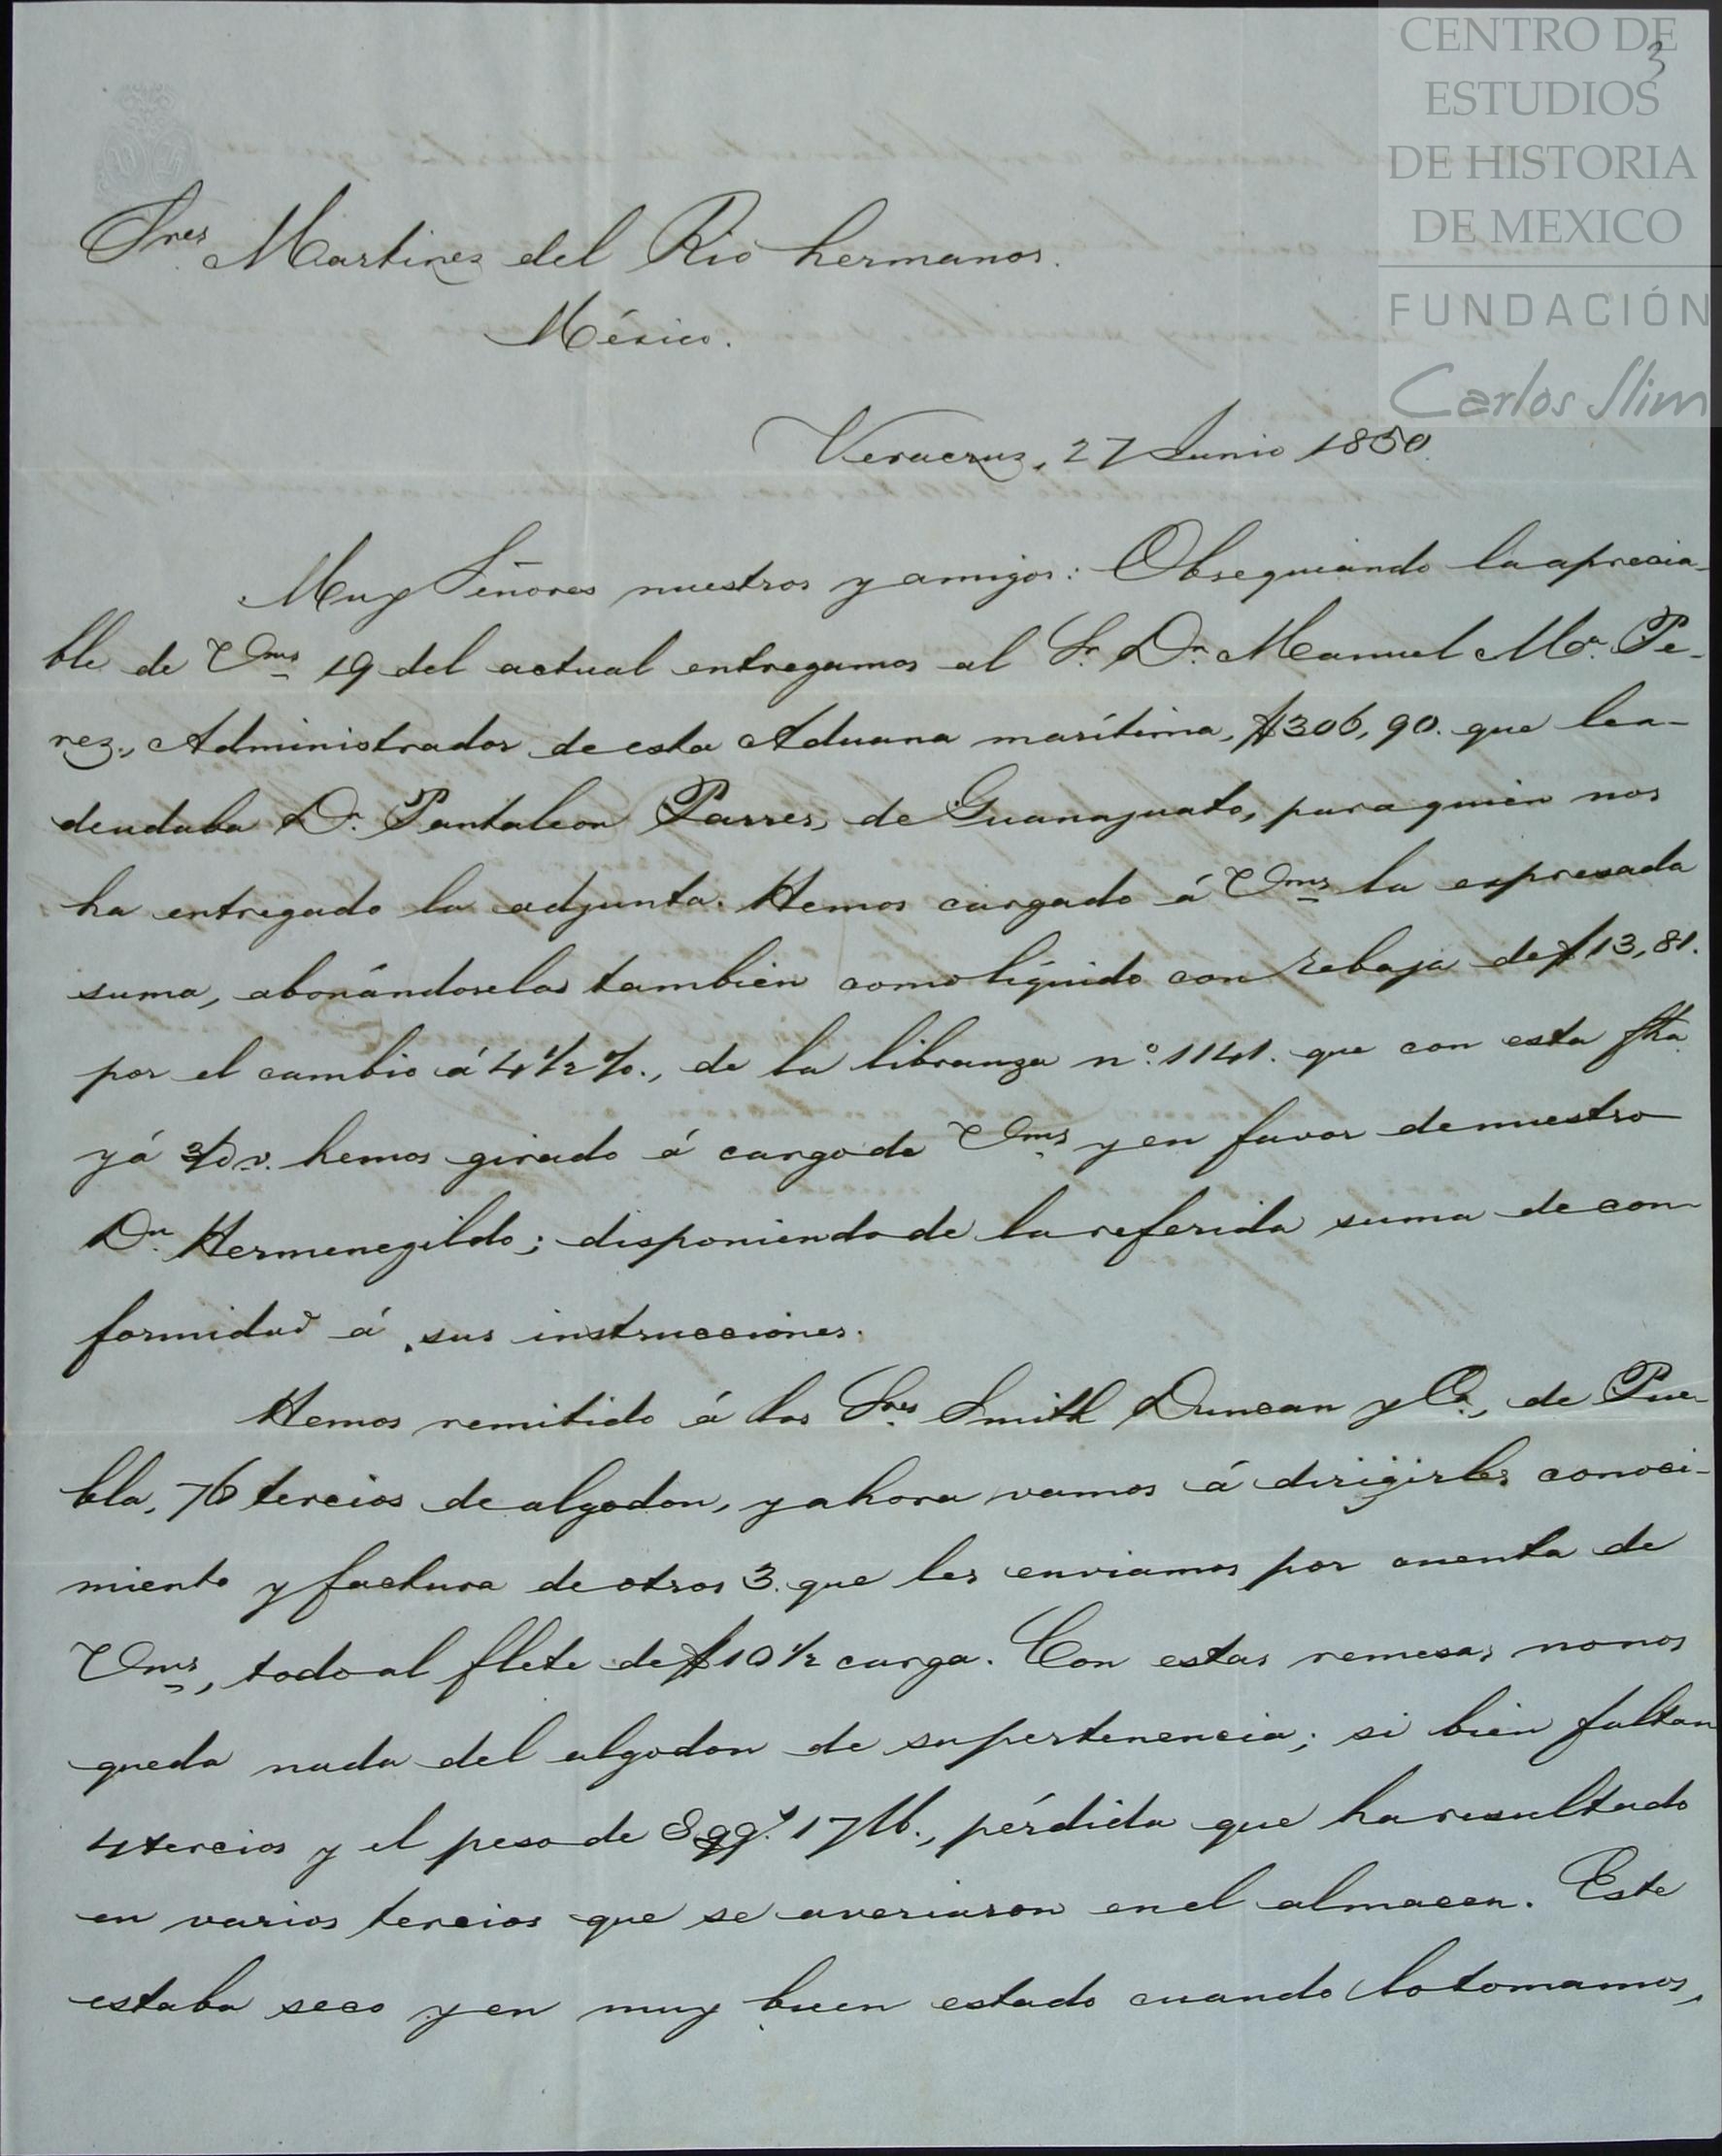 CENTRO DE
ESTUDIOS
DE HISTORIA
DE MEXICO
FUNDACIÓN
Carlos Slim
3
Sres Martinez del Rio hermanos.
México.
Veracruz, 27 Junio 1850.
Muy Señores nuestros y amigos: Obsequiando la aprecia-
ble de Vms 19 del actual entregamos al Sr. Dn. Manuel Ma. Pe-
rez, Administrador de esta Aduana marítima, $306,90. que les a-
deudaba Dn. Pantaleon Parres, de Guanajuato, para quien nos
ha entregado la adjunta. Hemos cargado á Vms la expresada
suma, abonándoselas tambien como líquido con rebaja de $13,81.
por el cambio á 4 1/2 %., de la libranza no. 1141. que con esta fha
y á 3/dv. hemos girado á cargo de Vms y en favor de nuestro
Dn. Hermenegildo; disponiendo de la referida suma de con-
formidad á sus instrucciones.
Hemos remitido á los Sres Smith Duncan y Ca., de Pue-
bla, 76 tercios de algodon, y ahora vamos á dirigirles conoci-
miento y factura de otros 3. que les enviamos por cuenta de
Vms, todo al flete de $10 1/2 carga. Con estas remesas no nos
queda nada del algodon de su pertenencia; si bien faltan
4 tercios y el peso de 8 qq.s 17 lb., pérdida que ha resultado
en varios tercios que se averiaron en el almacen. Este
estaba seco y en muy buen estado cuando lo tomamos,